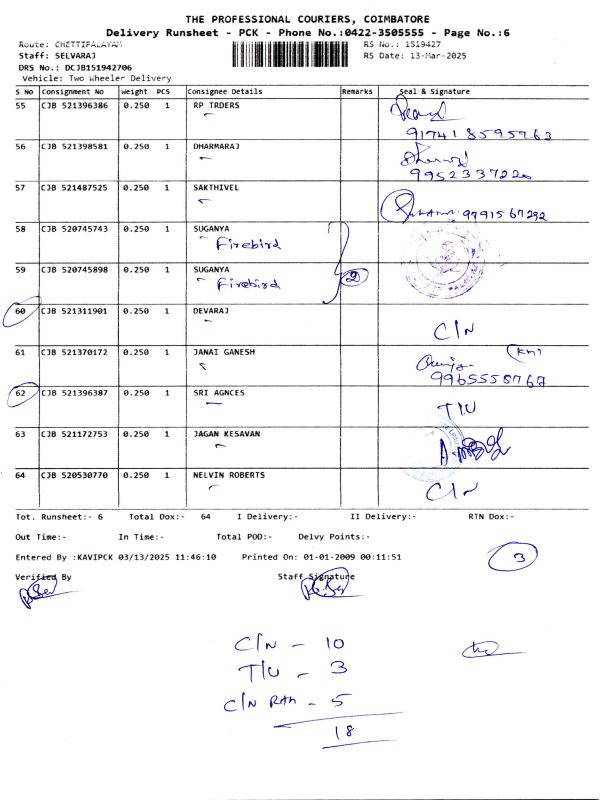 THE PROFESSIONAL COURIERS, COIMBATORE
Delivery Runsheet - PCK - Phone No.:0422-3505555 - Page No.:6
Route: CHETTIPALAYAM RS No.: 1519427
Staff: SELVARAJ RS Date: 13-Mar-2025
DRS No.: DCJB151942706
Vehicle: Two Wheeler Delivery
S No Consignment No Weight PCS Consignee Details Remarks Seal & Signature
55 CJB 521396386 0.250 1 RP TRDERS
917418595763
56 CJB 521398581 0.250 1 DHARMARAJ
9952337220
57 CJB 521487525 0.250 1 SAKTHIVEL 9791567292
58 CJB 520745743 0.250 1 SUGANYA
Firebird
59 CJB 520745898 0.250 1 SUGANYA
Firebird 2
60 CJB 521311901 0.250 1 DEVARAJ
C/N
61 CJB 521370172 0.250 1 JANAI GANESH
9965558767
62 CJB 521396387 0.250 1 SRI AGNCES
T/U
63 CJB 521172753 0.250 1 JAGAN KESAVAN
64 CJB 520530770 0.250 1 NELVIN ROBERTS
C/N
Tot. Runsheet:- 6 Total Dox:- 64 I Delivery:- II Delivery:- RTN Dox:-
Out Time:- In Time:- Total POD:- Delvy Points:-
Entered By :KAVIPCK 03/13/2025 11:46:10 Printed On: 01-01-2009 00:11:51
3
Verified By Staff Signature
C/N - 10
T/U - 3
C/N - 5
18